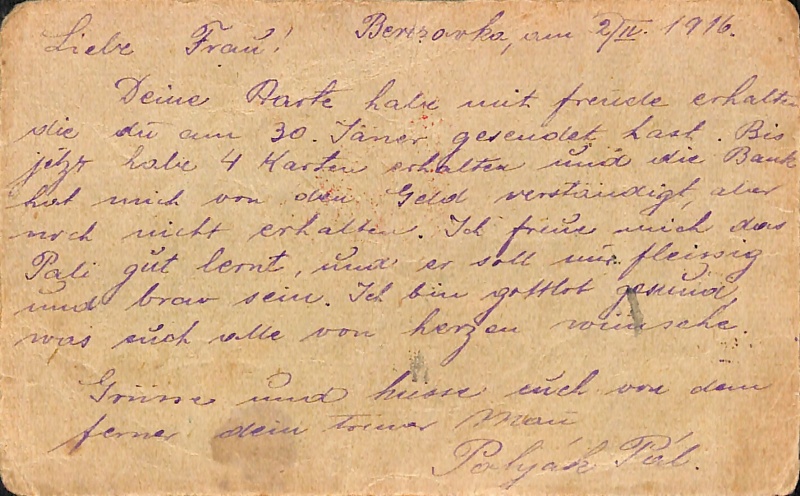 Liebe Frau! Berezovka, am 2/IV. 1916.
Deine Karte habe mit freude erhalten
die du am 30. Jäner gesendet hast. Bis
jetzt habe 4 Karten erhalten und die Bank
hat mich von den Geld verständigt, aber
noch nicht erhalten. Ich freue mich das
Pali gut lernt, und er soll nur fleissig
und brav sein. Ich bin gottlob gesund,
was euch alle von herzen wünsche.
Grüsse und küsse euch von dem
ferner dein treuer Mann
Polyák Pál.